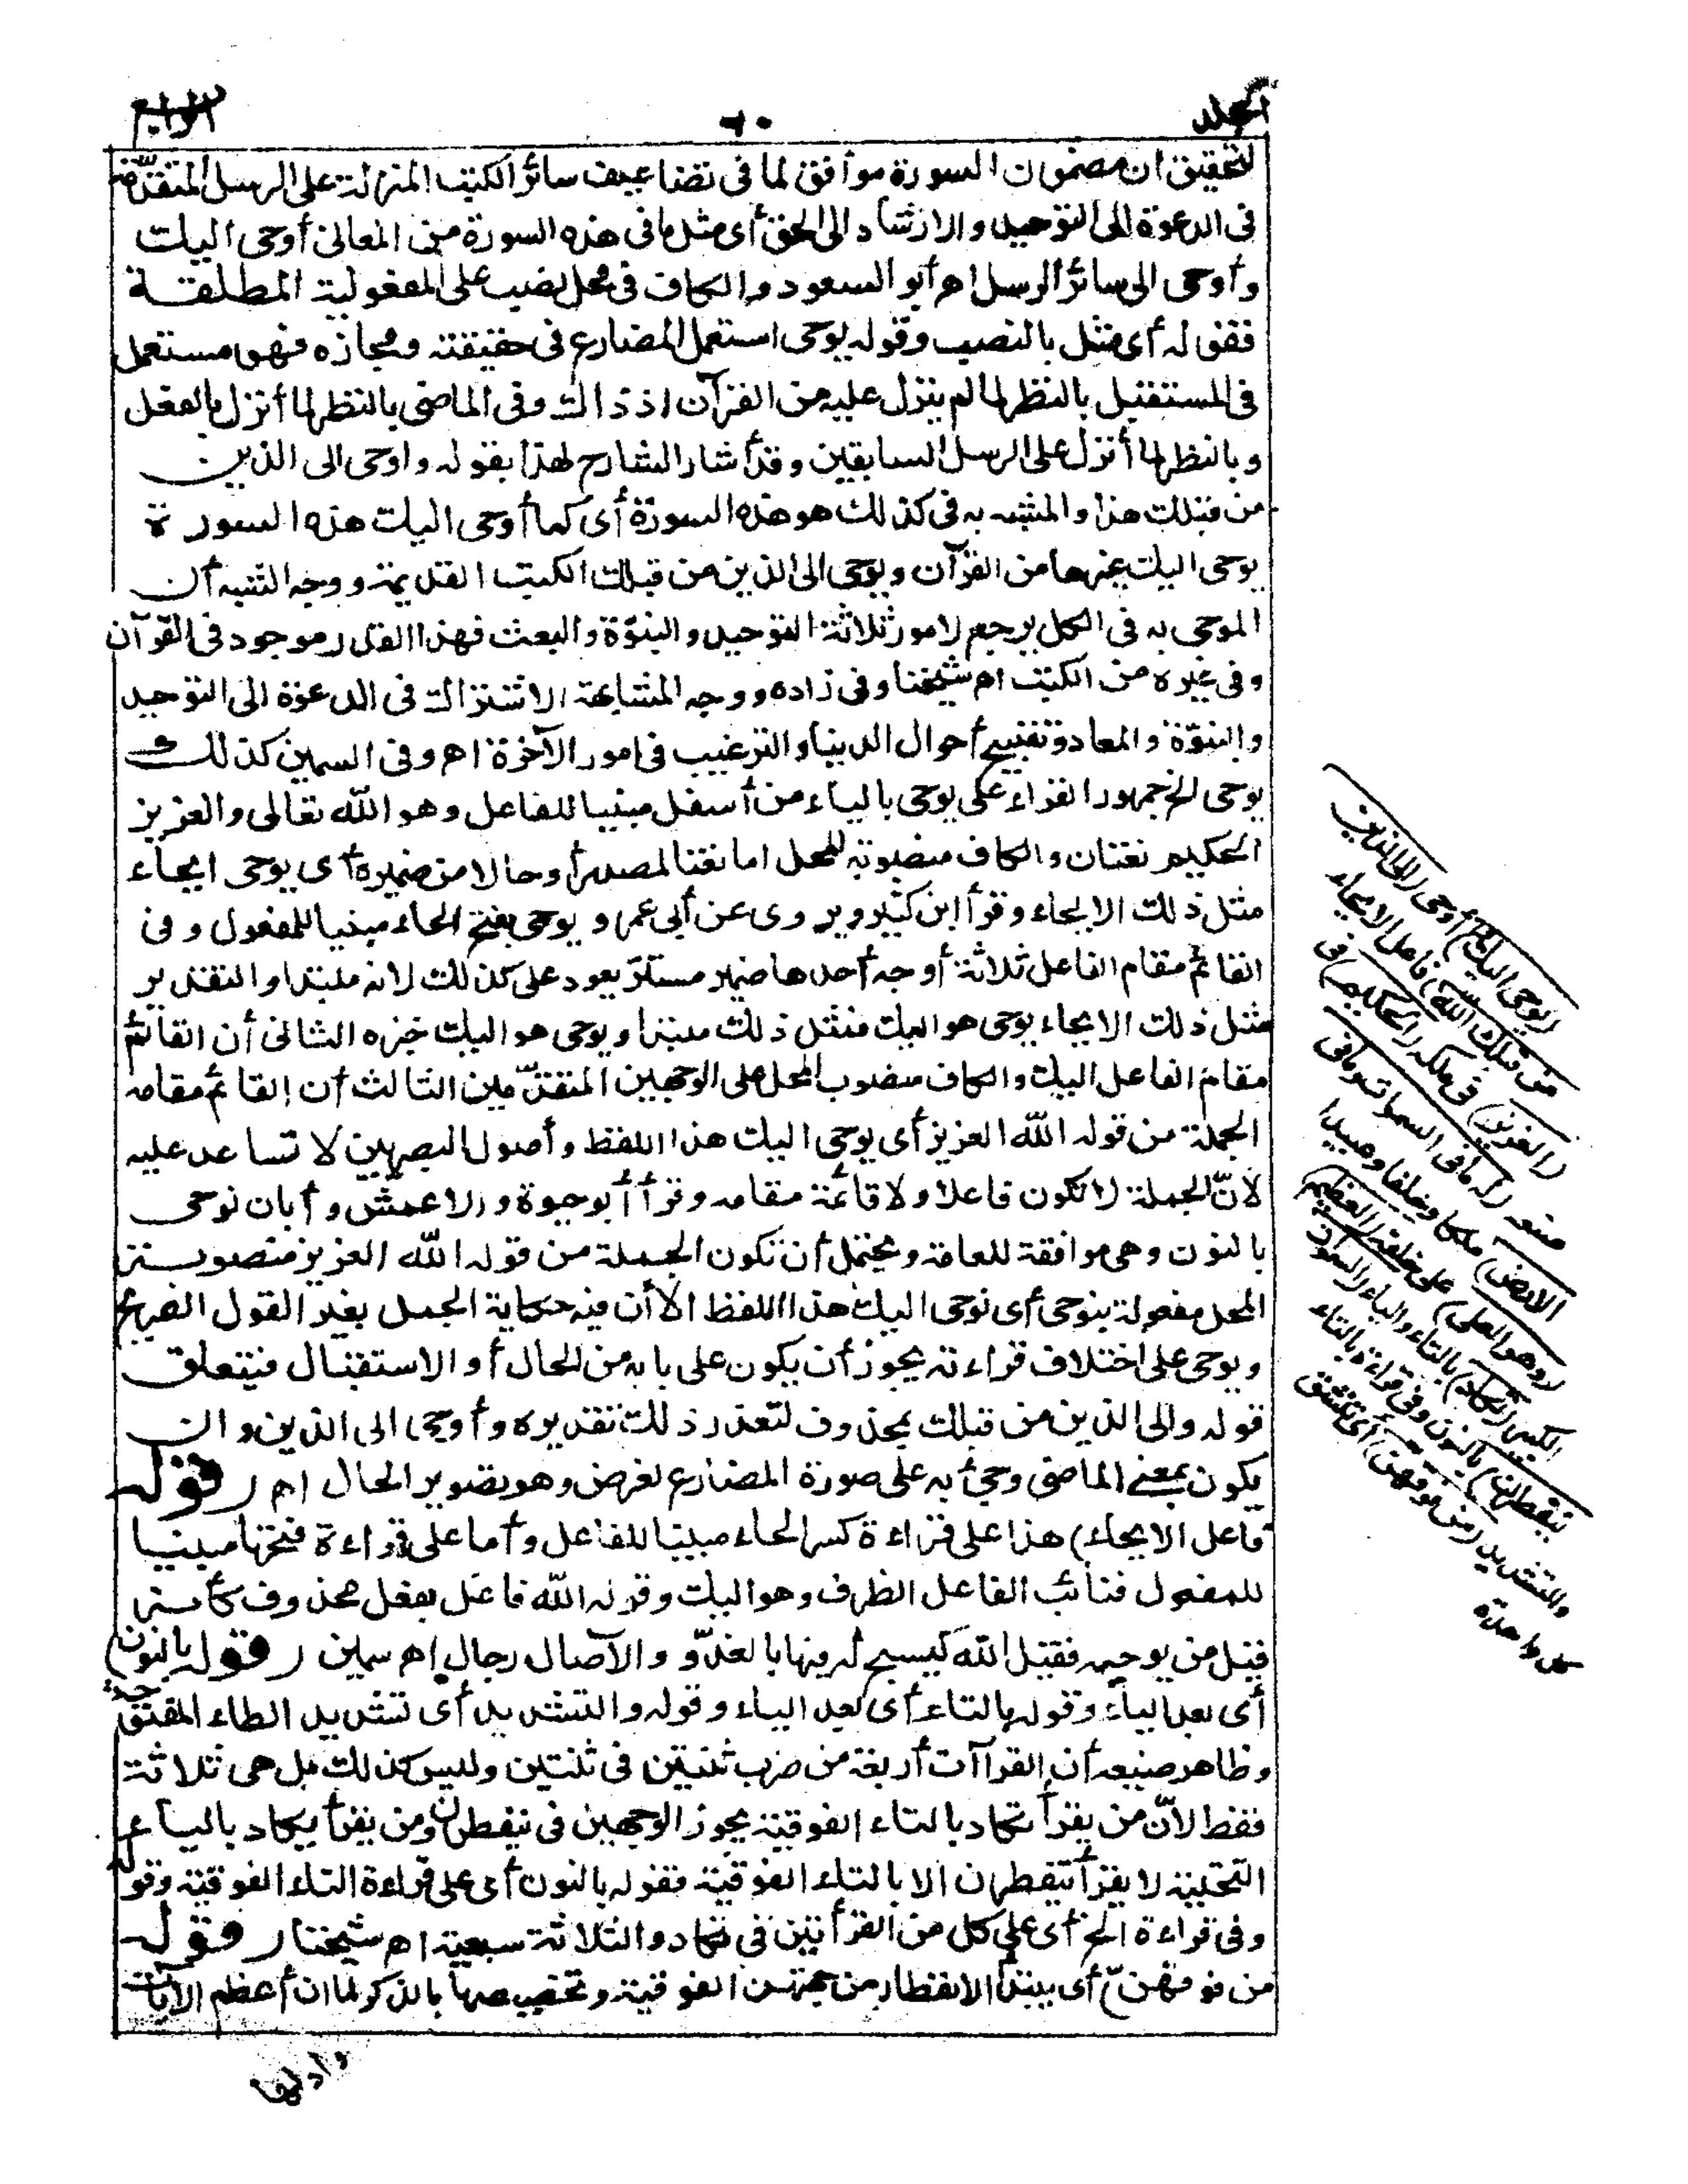 المجلد
٦٠
الرابع
لتحقيق ان مضمون السورة موافق لما فى تضاعيف سائر الكتب المنزلة على الرسل المتقدّمة
فى الدعوة الى التوحيد والارشاد الى الحق أى مثل ما فى هذه السورة من المعانى أوحى اليك
وأوحى الى سائر الرسل اه أبو السعود والكاف فى محل نصب على المفعولية المطلقة
فقوله أى مثل بالنصب وقوله يوحى استعمل المضارع فى حقيقته ومجازه فهو مستعمل
فى المستقبل بالنظر لما لم ينزل عليه من القرآن اذ ذاك وفى الماضى بالنظر لما أنزل بالفعل
وبالنظر لما أنزل على الرسل السابقين وقد أشار الشارح لهذا بقوله وأوحى الى الذين
من قبلك هذا والمشبه به فى كذلك هو هذه السورة أى كما أوحى اليك هذه السورة
يوحى اليك غيرها من القرآن ويوحى الى الذين من قبلك الكتب القديمة ووجه التشبيه أن
الموحى به فى الكل يرجع لامور ثلاثة التوحيد والنبوّة والبعث فهذا القدر موجود فى القرآن
وفى غيره من الكتب اه شيخنا وفى زاده ووجه المشابهة الاشتراك فى الدعوة الى التوحيد
والنبوّة والمعاد وتقبيح أحوال الدنيا والترغيب فى امور الآخرة اه وفى السمين كذلك
يوحى الخ جمهور القراء على يوحى بالياء من أسفل مبنيا للفاعل وهو الله تعالى والعزيز
الحكيم نعتان والكاف منصوبة المحل اما نعتا لمصدر أو حالا من ضميره أى يوحى ايحاء
مثل ذلك الايحاء وقرأ ابن كثير ويروى عن أبى عمرو يوحى بفتح الحاء مبنيا للمفعول وفى
القائم مقام الفاعل ثلاثة أوجه أحدها ضمير مستتر يعود على كذلك لانه مبتدا والتقدير
مثل ذلك الايحاء يوحى هو اليك فمثل ذلك مبتدا ويوحى هو اليك خبره الثانى أن القائم
مقام الفاعل اليك والكاف منصوب المحل على الوجهين المتقدّمين الثالث أن القائم مقامه
الجملة من قوله الله العزيز أى يوحى اليك هذا اللفظ وأصول البصريين لا تساعد عليه
لانّ الجملة لا تكون فاعلا ولا قائمة مقامه وقرأ أبو حيوة والاعمش وأبان نوحى
بالنون وهى موافقة للعامة ويحتمل أن تكون الجملة من قوله الله العزيز منصوبة
المحل مفعولة بنوحى أى نوحى اليك هذا اللفظ الا أن فيه حكاية الجمل بغير القول الصريح
ويوحى على اختلاف قراءته يجوز أن يكون على بابه من الحال أو الاستقبال فيتعلق
قوله والى الذين من قبلك بمحذوف لتعذر ذلك تقديره وأوحى الى الذين وان
يكون بمعنى الماضى وجئ به على صورة المضارع لغرض وهو تصوير الحال اه (قوله
فاعل الايحاء) هذا على قراءة كسر الحاء مبنيا للفاعل وأما على قراءة فتحها مبنيا
للمفعول فنائب الفاعل الظرف وهو اليك وقوله الله فاعل بفعل محذوف كأنه
قيل من يوحيه فقيل الله كيسبح له فيها بالغدوّ والآصال رجال اه سمين (قوله بالنون)
أى بعد الياء وقوله بالتاء أى بعد الياء وقوله والتشديد أى تشديد الطاء المفتوحة
وظاهر صنيعه أن القراآت أربعة من ضرب ثنتين فى ثنتين وليس كذلك بل هى ثلاثة
فقط لانّ من يقرأ تكاد بالتاء الفوقية يجوز الوجهين فى يتفطرن ومن يقرأ يكاد بالياء
التحتية لا يقرأ يتفطرن الا بالتاء الفوقية فقوله بالنون أى على قراءة التاء الفوقية وقوله
وفى قراءة الخ أى على كل من القراءتين فى تكاد والثلاثة سبعية اه شيخنا (قوله
من فوقهنّ) أى يبتدأ الانفطار من جهتهن الفوقية وتخصيصها بالذكر لما ان أعظم الآيات
وادلها
(يوحى اليك) أوحى (الى الذين
من قبلك الله) فاعل الايحاء
(العزيز) فى ملكه (الحكيم) فى
صنعه (له ما فى السموات وما فى
الارض) ملكا وخلقا وعبيدا
(وهو العلى) على خلقه (العظيم)
الكبير (تكاد) بالتاء والياء (السموات
ينفطرن) بالنون وفى قراءة بالتاء
والتشديد (من فوقهن) أى تنشق
كل واحدة